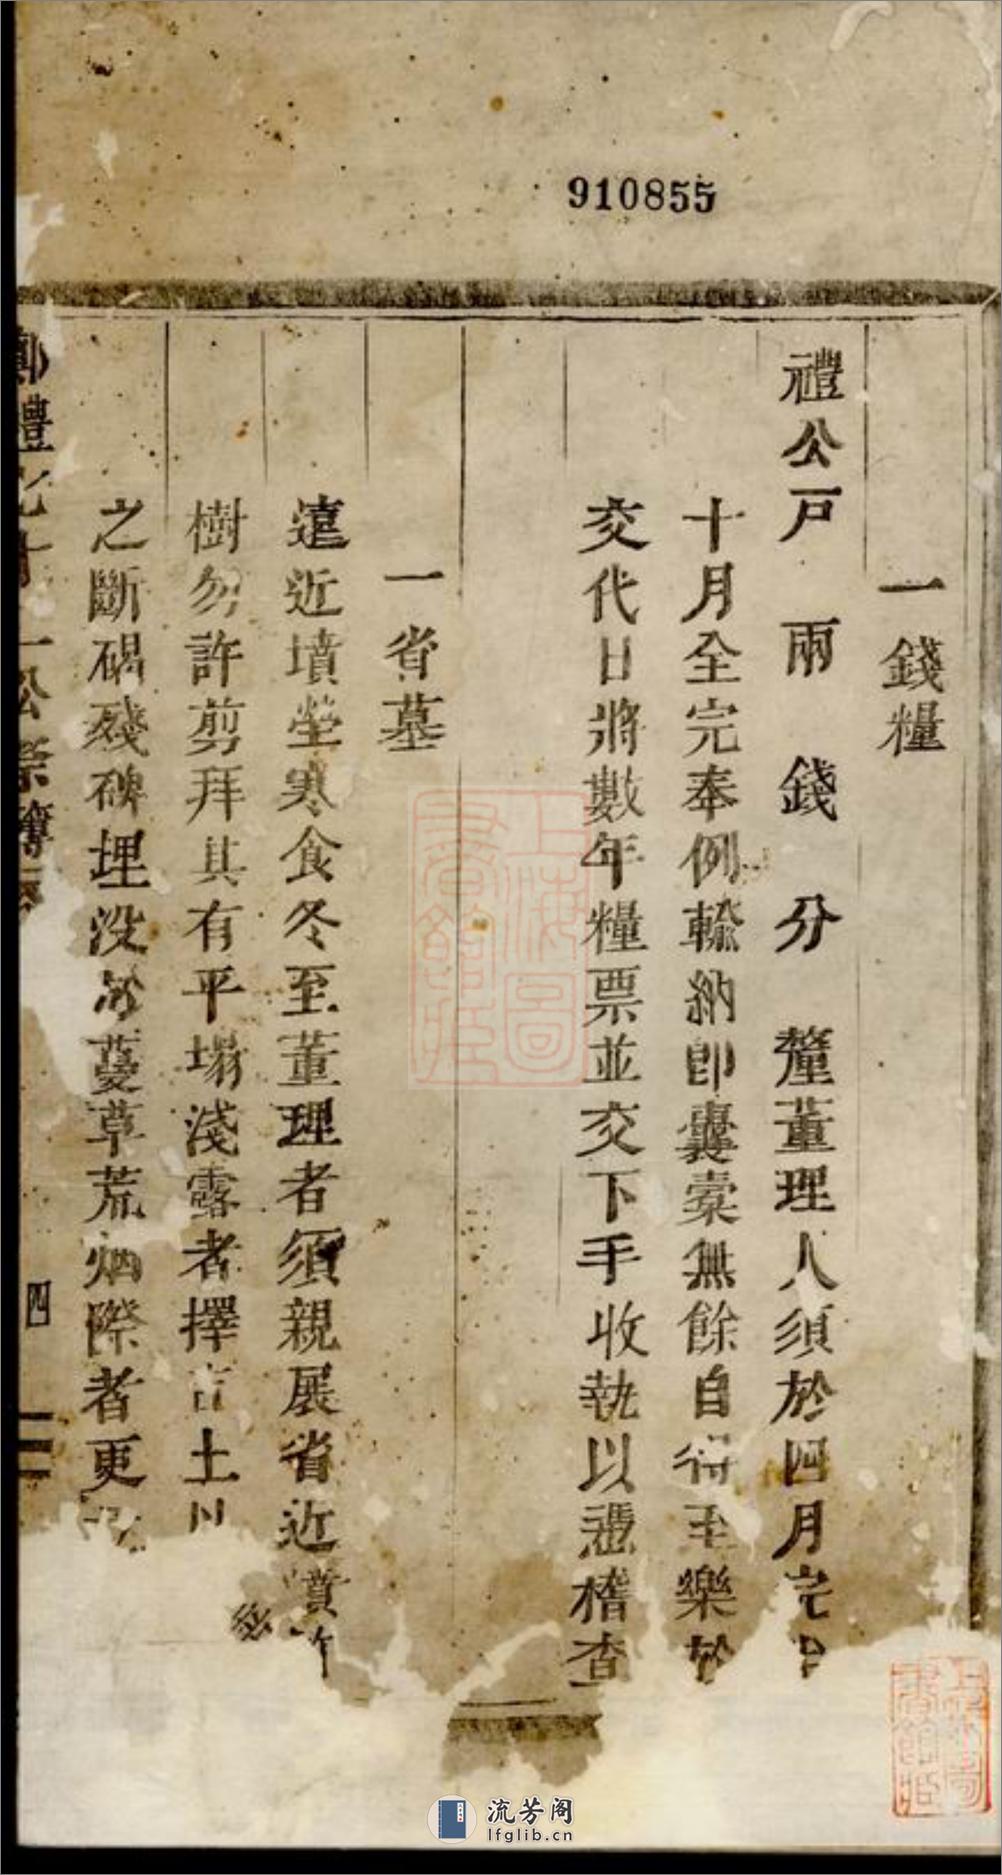 910855
一錢糧
禮公戸 兩 錢 分 釐董理人須於四月完
十月全完奉例輸納即囊橐無餘自得至樂於
交代日將數年糧票並交下手收執以憑稽查
一省墓
遠近墳塋寒食冬至董理者須親展省近墳
樹勿許剪拜其有平塌淺露者擇吉土以
之斷碣殘碑埋没於蔓草荒烟際者更
四
上海圖書館藏
上海圖書館藏
流芳阁
lfglib.cn